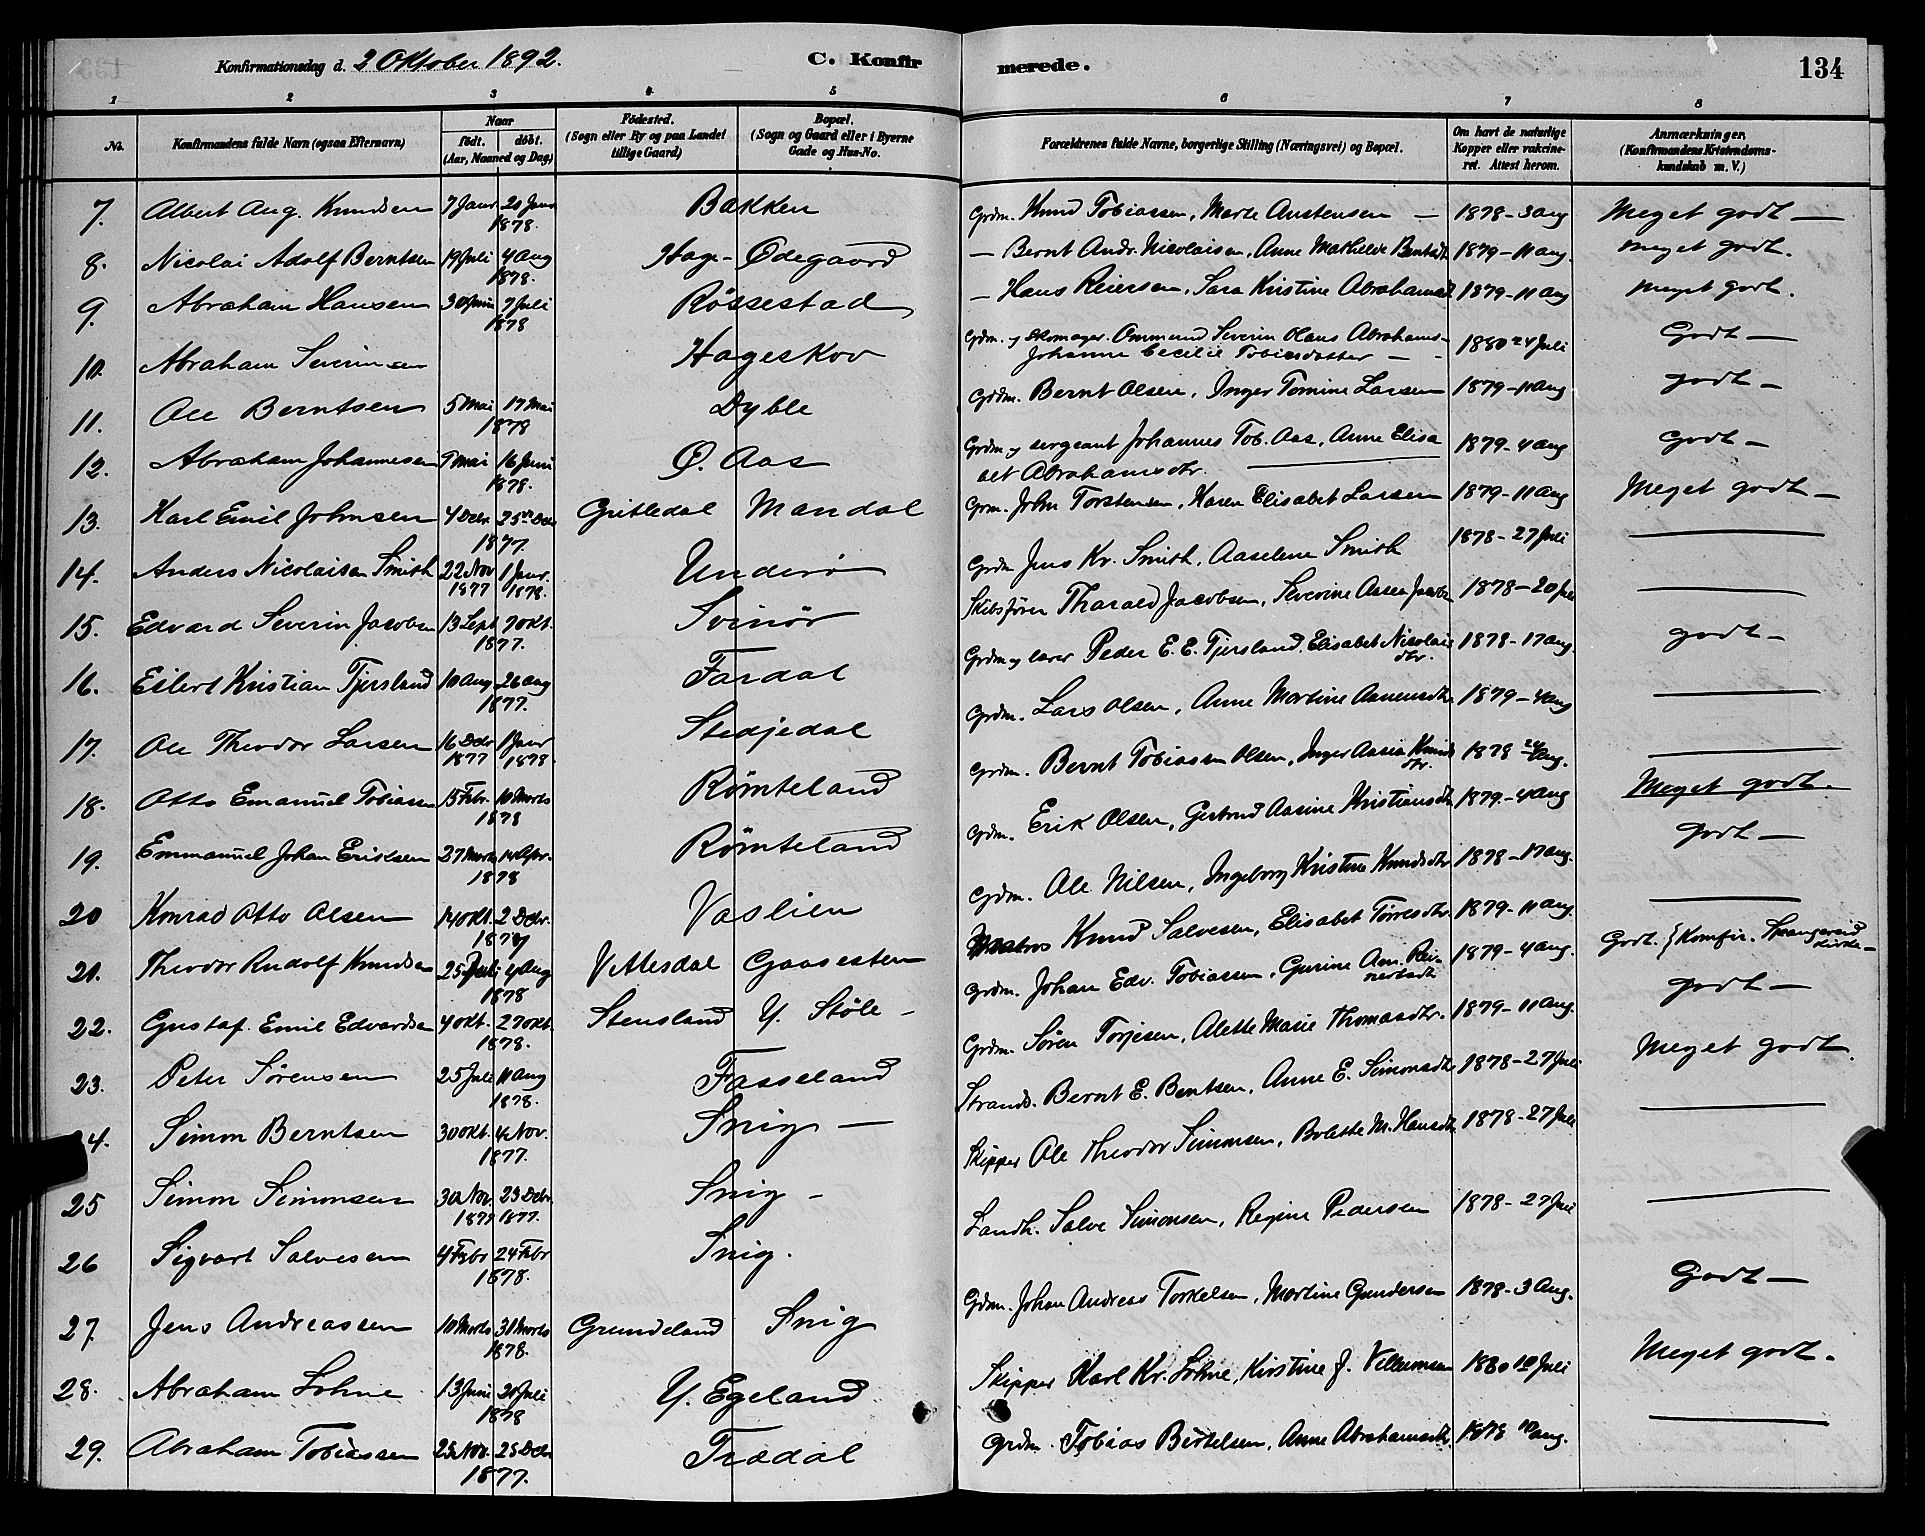 Konfirmationsdag d. 2 Oktober 1892. C. Konfirmerede. 134
1 2 3 4 5 6 7 8
No. Konfirmandens fulde Navn (ogsaa Efternavn) Naar født. døbt. (Aar, Maaned og Dag) Fødested. (Sogn eller By og paa Landet tillige Gaard) Bopæl. (Sogn og Gaard eller i Byerne Gade og Hus-No. Forældrenes fulde Navne, borgerlige Stilling (Næringsvei) og Bopæl. Om havt de naturlige Kopper eller vakcineret. Attest herom. Anmærkninger. (Konfirmandens Kristendomskundskab m. V.)
7. Albert Aug. Knudsen 7 Janr 20 Janr 1878. Bakken Grdm. Knud Tobiassen, Marte Austensen — 1878 - 3 aug Meget godt —
8. Nicolai Adolf Berntsen 19 Juli 4 Aug 1878. Hage-Ødegaard — Bernt Andr. Nicolaisen, Anne Mathilde Berntsdtr 1879 - 11 aug. Meget godt.
9. Abraham Hansen 30 Juni 7 Juli 1878 Røssestad — Hans Reiersen, Sara Kristine Abrahamsd 1879 - 11 aug Meget godt.
10. Abraham Severinsen Hageskov Gdm. og Skomager. Ommund Severin Olaus Abrahams- Johanne Cecilie Tobiasdatter — 1880 24 Juli Godt —
11. Ole Berntsen 5 Mai 17 Mai 1878 Dyble Grdm. Bernt Olsen, Inger Tomine Larsen 1879 - 11 aug godt —
12. Abraham Johannesen 7 Mai 16 Juni 1878. Ø. Aas Grdm og sergeant Johannes Tob. Aas, Anne Elisabet Abrahamsdtr. 1879 - 4 aug Godt —
13. Karl Emil Johnsen 4 Decbr 25de Decb 1877. Gritledal Mandal Grm. John Torstensen, Karen Elisabet Larsen 1879 - 11 aug Meget godt —
14. Anders Nicolaisen Smith 22 Nov 1877 1 Janr. 1878. Underø Grdm Jens Kr. Smith, Aaselene Smith 1878 - 27 Juli —
15. Edvard Severin Jacobsen 13 Sept 7 okt. 1877. Svinør Skibsfører Tharald Jacobsen, Severine Aasea Jacobsen 1878 - 20 Juli —
16. Eilert Kristian Tjersland 10 aug 26 aug 1877. Fardal Grdm og lærer Peder E. E. Tjersland. Elisabet Nicolaisdtr. 1878 - 17 aug. godt —
17. Ole Theodor Larsen 16 Decbr 1877 1 Janr 1878 Stedjedal Grdm. Lars Olsen, Anne Martine Aanensdtr 1879 - 4 aug —
18. Otto Emanuel Tobiassen 15 Febr. 10 Marts 1878 Rømteland Grdm. Bernt Tobiassen Olsen, Inger Aasia Knudsdtr. 1878 24 Aug. —
19. Emmanuel Johan Eriksen 27 Marts 14 Apr. 1878 Rømteland Grdm. Erik Olsen, Gertrud Aasine Kristiansdtr 1879. - 4 aug Meget godt.
20 Konrad Otto Olsen 14 okt. 2 Decbr. 1877 Vaslien Grdm. Ole Nilsen, Ingeborg Kristine Knudsdtr 1878 - 17 aug. Godt —
21. Theodor Rudolf Knudsen 25 Juli 4 Aug 1878 Vitlesdal Gaasesten Matros Knud Salvesen, Elisabet Torresdtr. 1879 - 11 aug. —
22. Gustaf Emil Edvardsen 4 okt. 27 okt. 1878. Stensland Y. Støle — Grdm. Johan Edv. Tobiassen, Gurine Aan. Reinertsdt 1879 - 4 aug. Godt. { Konfir. Spangereid Kirke —
23. Peter Sørensen 25 Juli 11 aug 1878. Fasseland Grdm. Søren Torjesen, Alette Marie Thomasdtr. 1879 - 11 aug. godt —
24. Simon Berntsen 30 okt. 4 Nov. 1877. Snig — Strands. Bernt E. Bentsen, Anne E. Simonsdtr 1878 - 27 Juli Meget godt.
25 Simon Simonsen 30 Nov. 1877 23 Decbr. 1877. Snig — Skipper Ole Theodor Simonsen, Bolette M. Hansdtr 1878 - 27 Juli —
26 Sigvart Salvesen 4 Febr 24 Febr 1878. Snig. Landh. Salve Simonsen, Regine Pedersen 1878 - 27 Juli —
27. Jens Andreassen 10 Marts 31 Marts 1878. Grundeland Snig Gdm. Johan Andreas Torkelsen, Martine Gundersen 1878 - 3 Aug. Godt —
28. Abraham Lohne 13 Juni 20 Juli 1878 Y. Egeland Skipper Karl Kr. Lohne, Kirstine J. Villumsen 1880 10 Juli Meget godt.
29. Abraham Tobiassen 23 Nov. 25 Decbr 1877. Trædal Grdm. Tobias Bertelsen, Anne Abrahamsdtr. 1878 10 aug. —